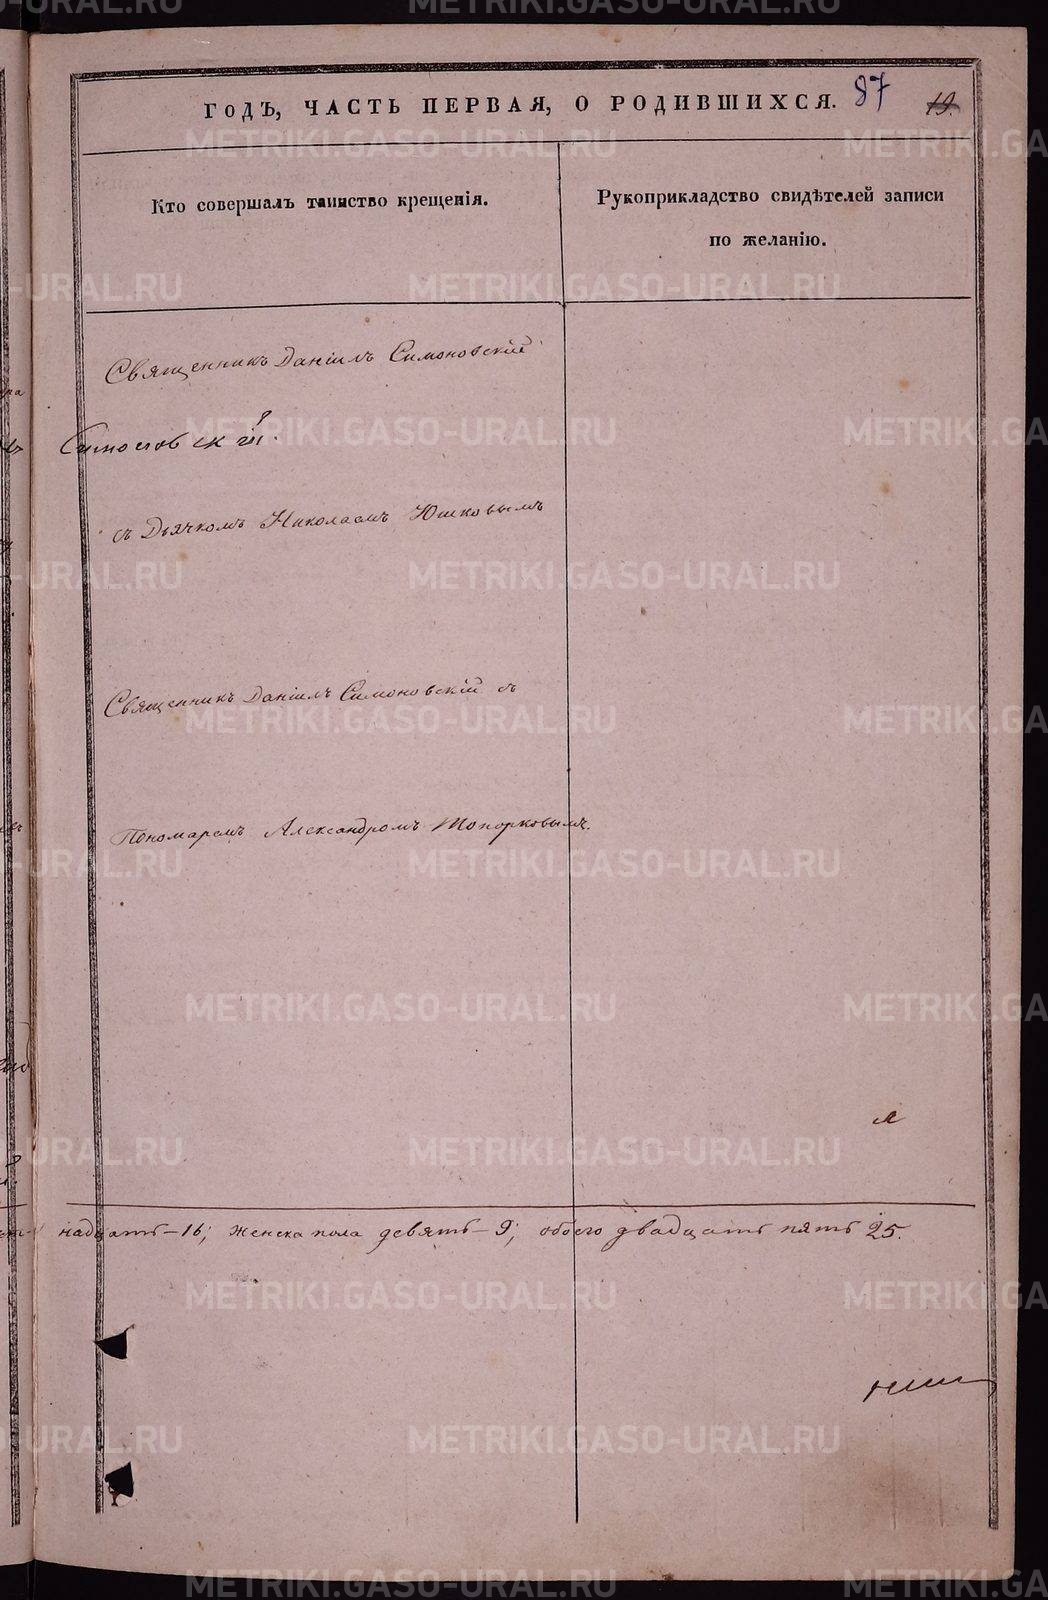 ГОДЪ, ЧАСТЬ ПЕРВАЯ, О РОДИВШИХСЯ. 87 19.
Кто совершалъ таинство крещенія.
Рукоприкладство свидѣтелей записи
по желанію.
Священникъ Даніилъ Симоновскій
съ Дьячкомъ Николаемъ Юшковымъ
Священникъ Даніилъ Симоновскій съ
Пономаремъ Александромъ Топорковымъ.
надцать – 16; женска пола девять – 9; обоего двадцать пять 25.
METRIKI.GASO-URAL.RU